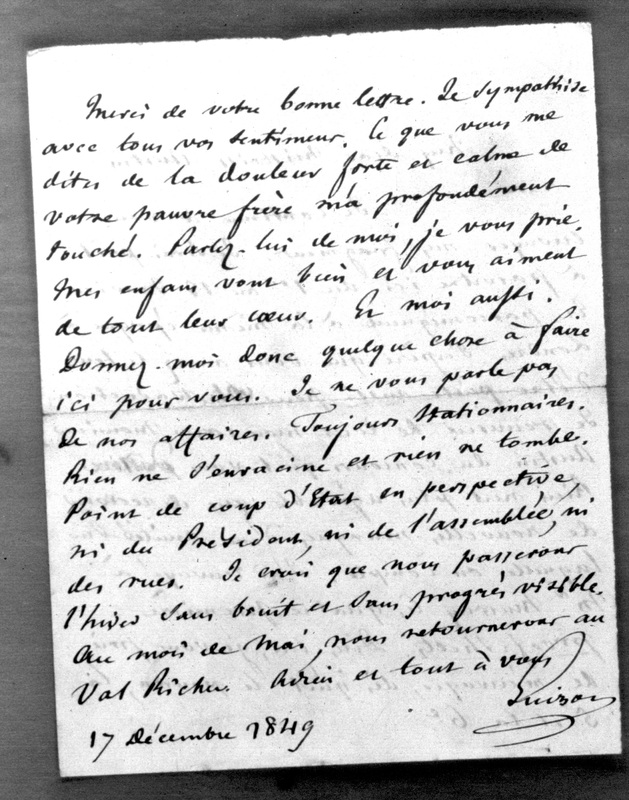 Merci de votre bonne lettre. Je sympathise
avec tous vos sentimens. Ce que vous me
dites de la douleur forte et calme de
votre pauvre frère m'a profondément
touché. Parlez-lui de moi, je vous prie.
Mes enfans vont bien et vous aiment
de tout leur cœur. Et moi aussi.
Donnez-moi donc quelque chose à faire
ici pour vous. Je ne vous parle pas
De nos affaires. Toujours stationnaires.
Rien ne s'enracine et rien ne tombe.
Point de coup d'Etat en perspective,
ni du Président, ni de l'assemblée, ni
des rues. Je crois que nous passerons
l'hiver sans bruit et sans progrès visible.
Au mois de Mai, nous retournerons au
Val Richer. Adieu et tout à vous
Guizot
17 Décembre 1849